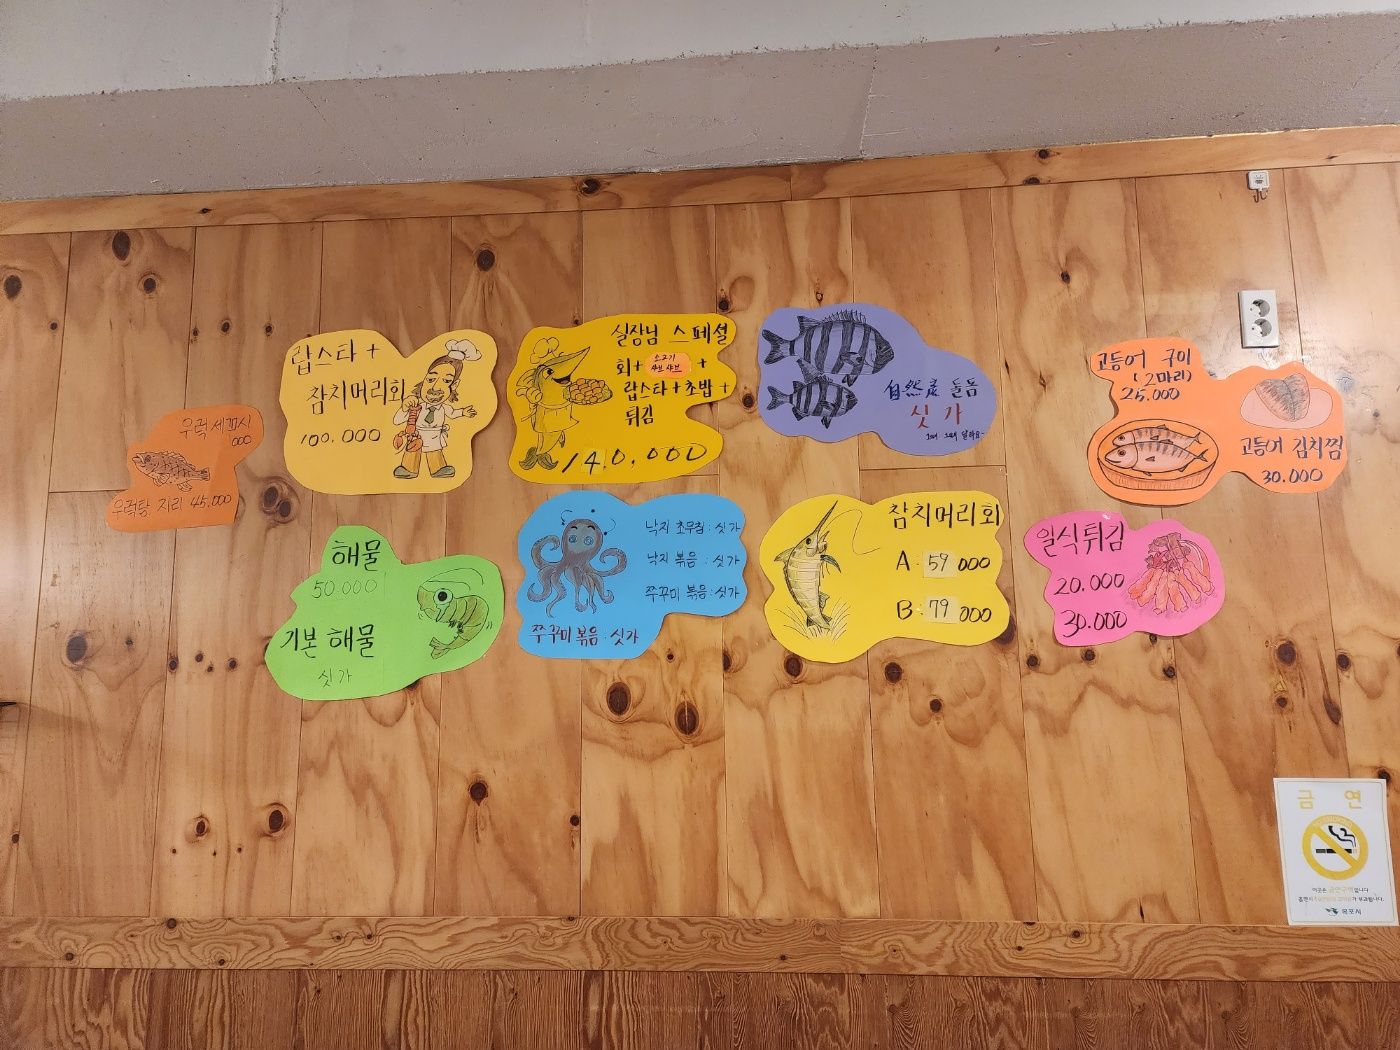 랍스타 +
참치머리회
100,000
실장님 스페셜
회+ 소고기 샤브샤브 +
랍스타+초밥+
튀김
140,000
自然산 돌돔
싯가
고등어 구이
(2마리)
25,000
고등어 김치찜
30.000
우럭 세꼬시
000
우럭탕 지리 45.000
해물
50 000
기본 해물
싯가
낙지 초무침 : 싯가
낙지 볶음 : 싯가
쭈꾸미 볶음 : 싯가
쭈꾸미 볶음 : 싯가
참치머리회
A. 59 000
B. 79 000
일식튀김
20.000
30.000
금 연
이곳은 금연구역입니다
목포시